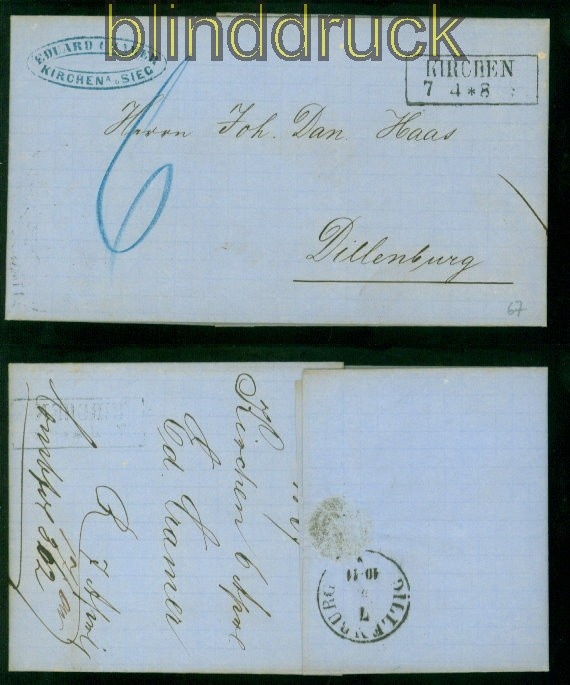 blinddruck
EDUARD
KIRCHEN A. SIEG
KIRCHEN
7 4 * 8
Herrn Joh. Dan. Haas
6
Dillenburg
67
Kirchen 6 April
Ed. Cramer
R 7 April
DILLENBURG
7
10-11